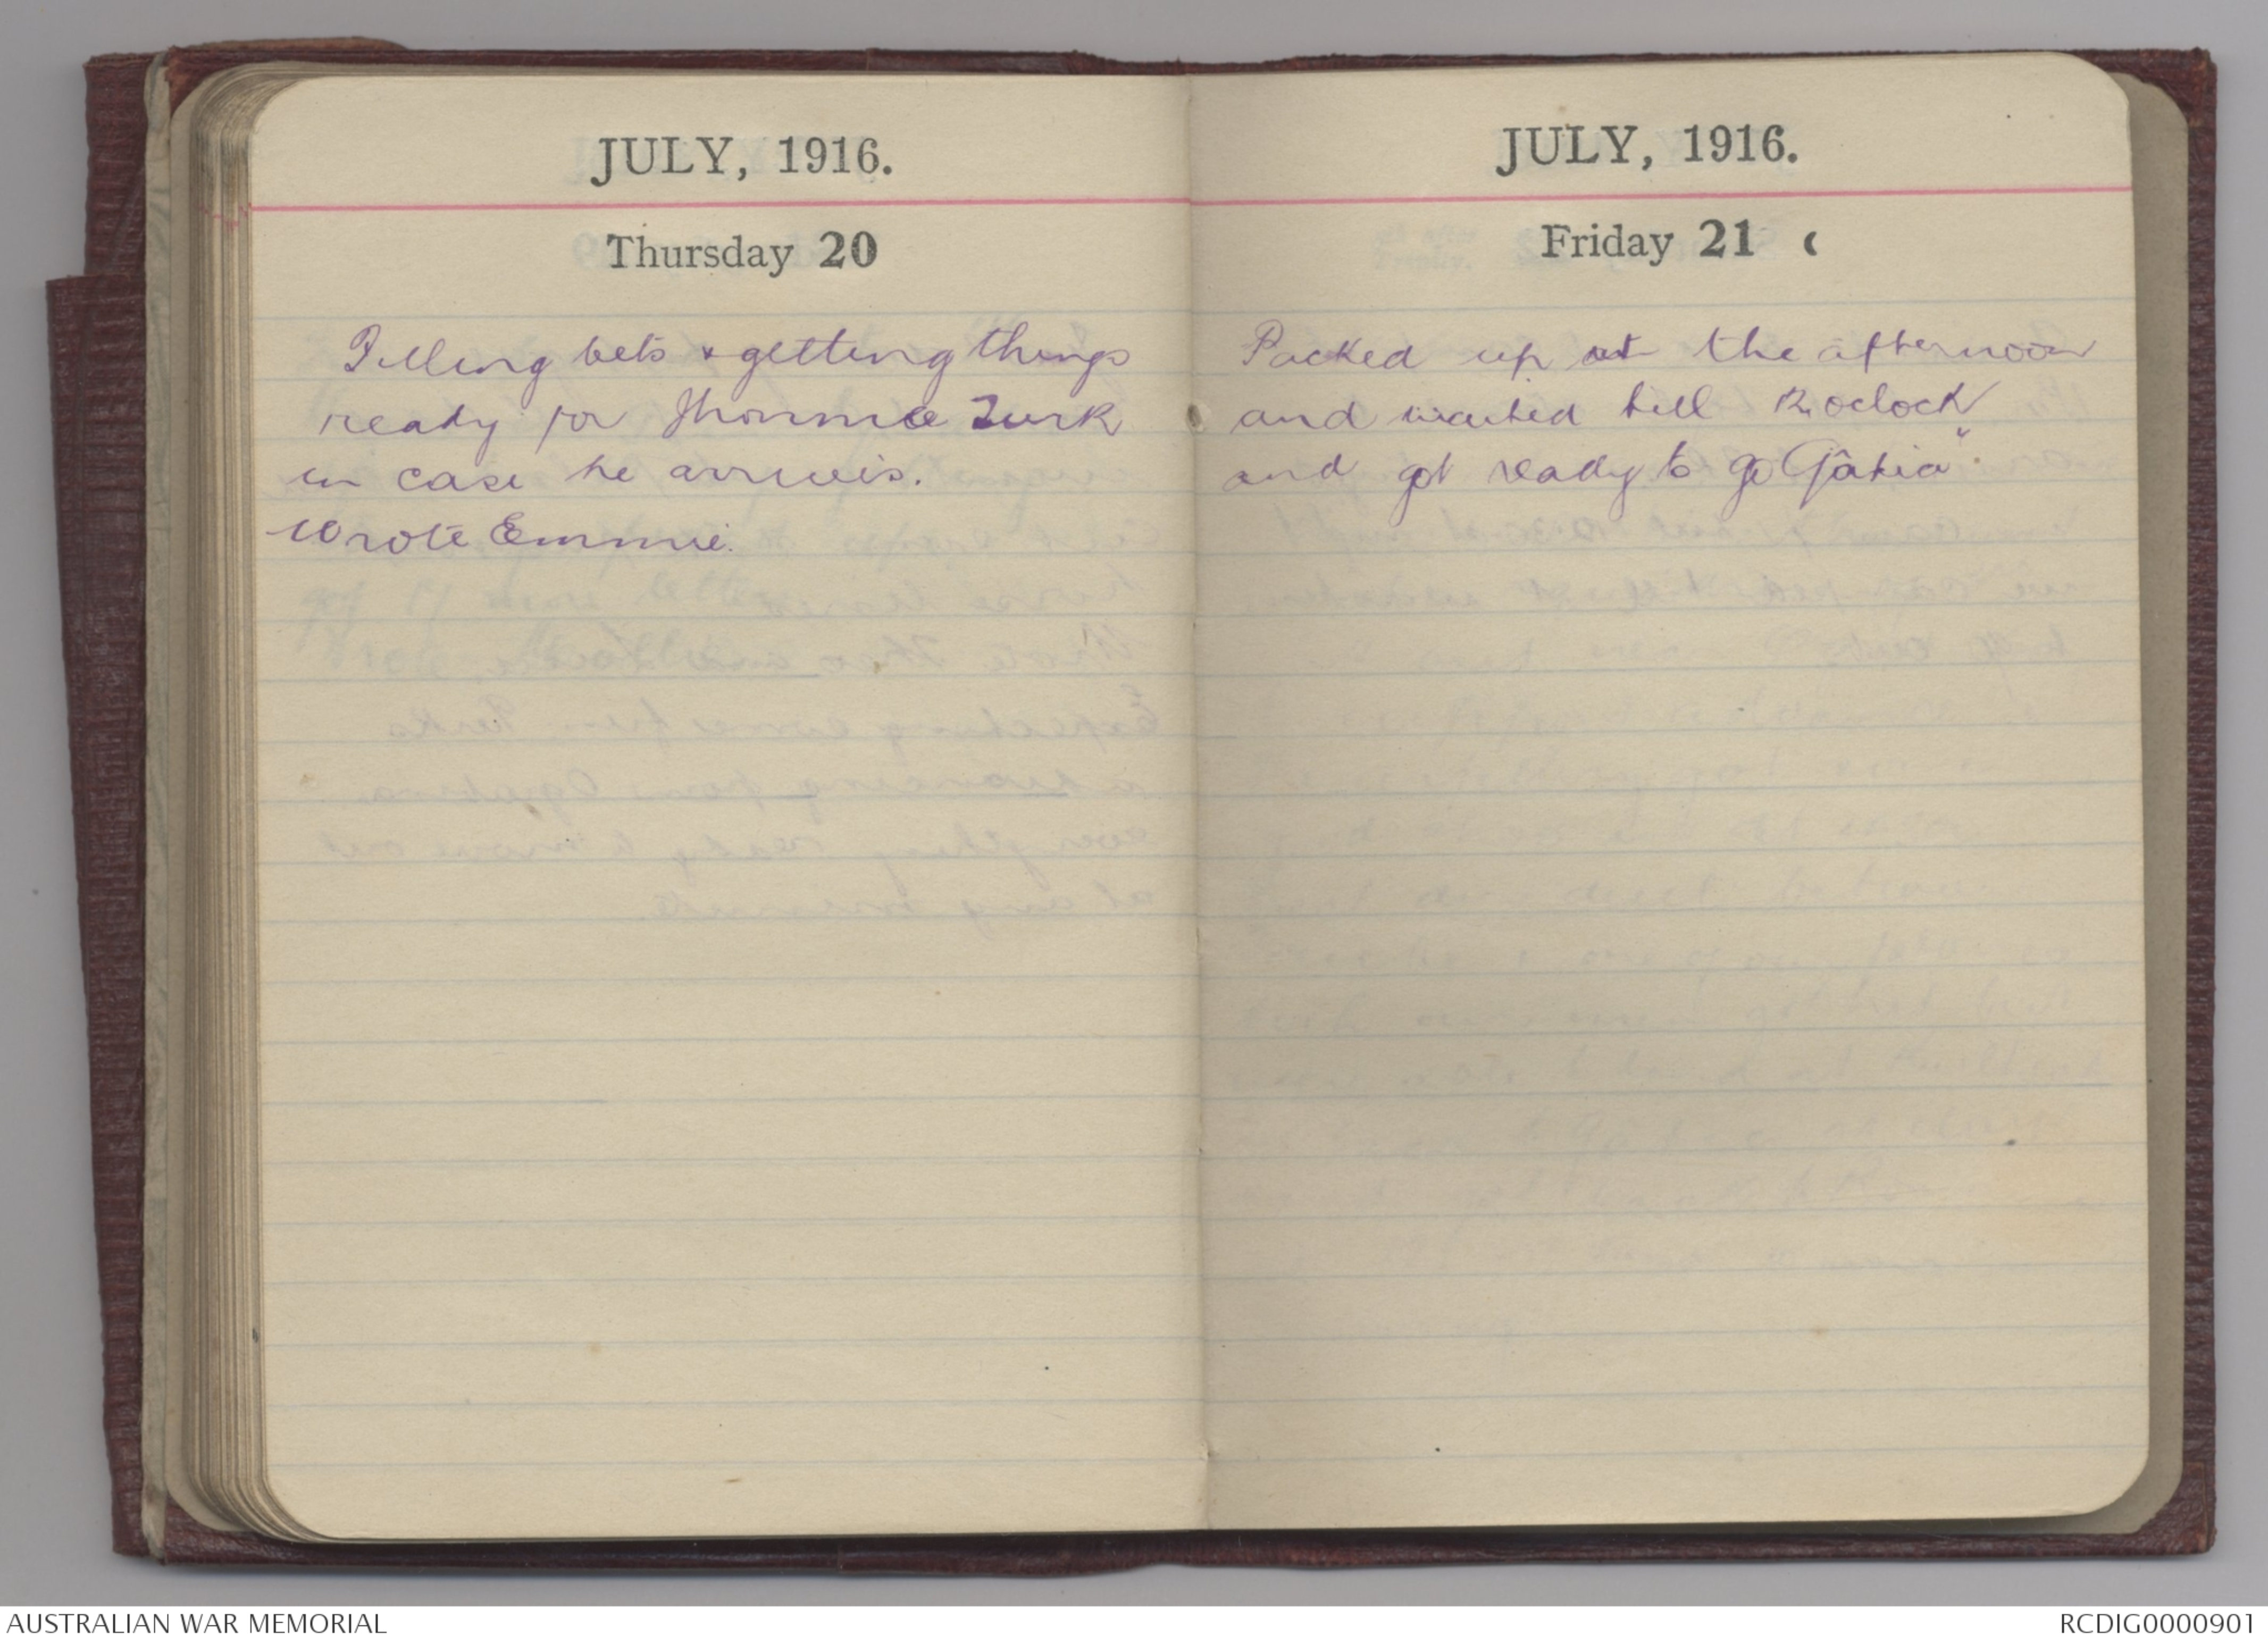 JULY, 1916.
Thursday 20
Filling belts & getting things
ready for Jhonnie Turk
in case he arrives.
Wrote Emmie.
JULY, 1916.
Friday 21
Packed up at the afternoon
and waited till 12 oclock
and got ready to go Gatia"
AUSTRALIAN WAR MEMORIAL
RCDIG0000901